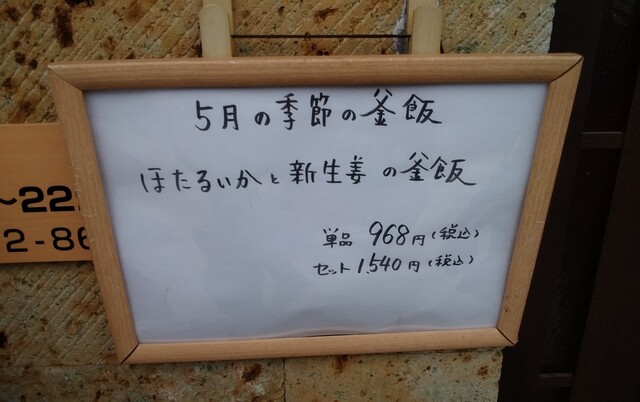 5月の季節の釜飯
ほたるいかと新生姜の釜飯
単品 968円(税込)
セット 1,540円(税込)
~22
2-86